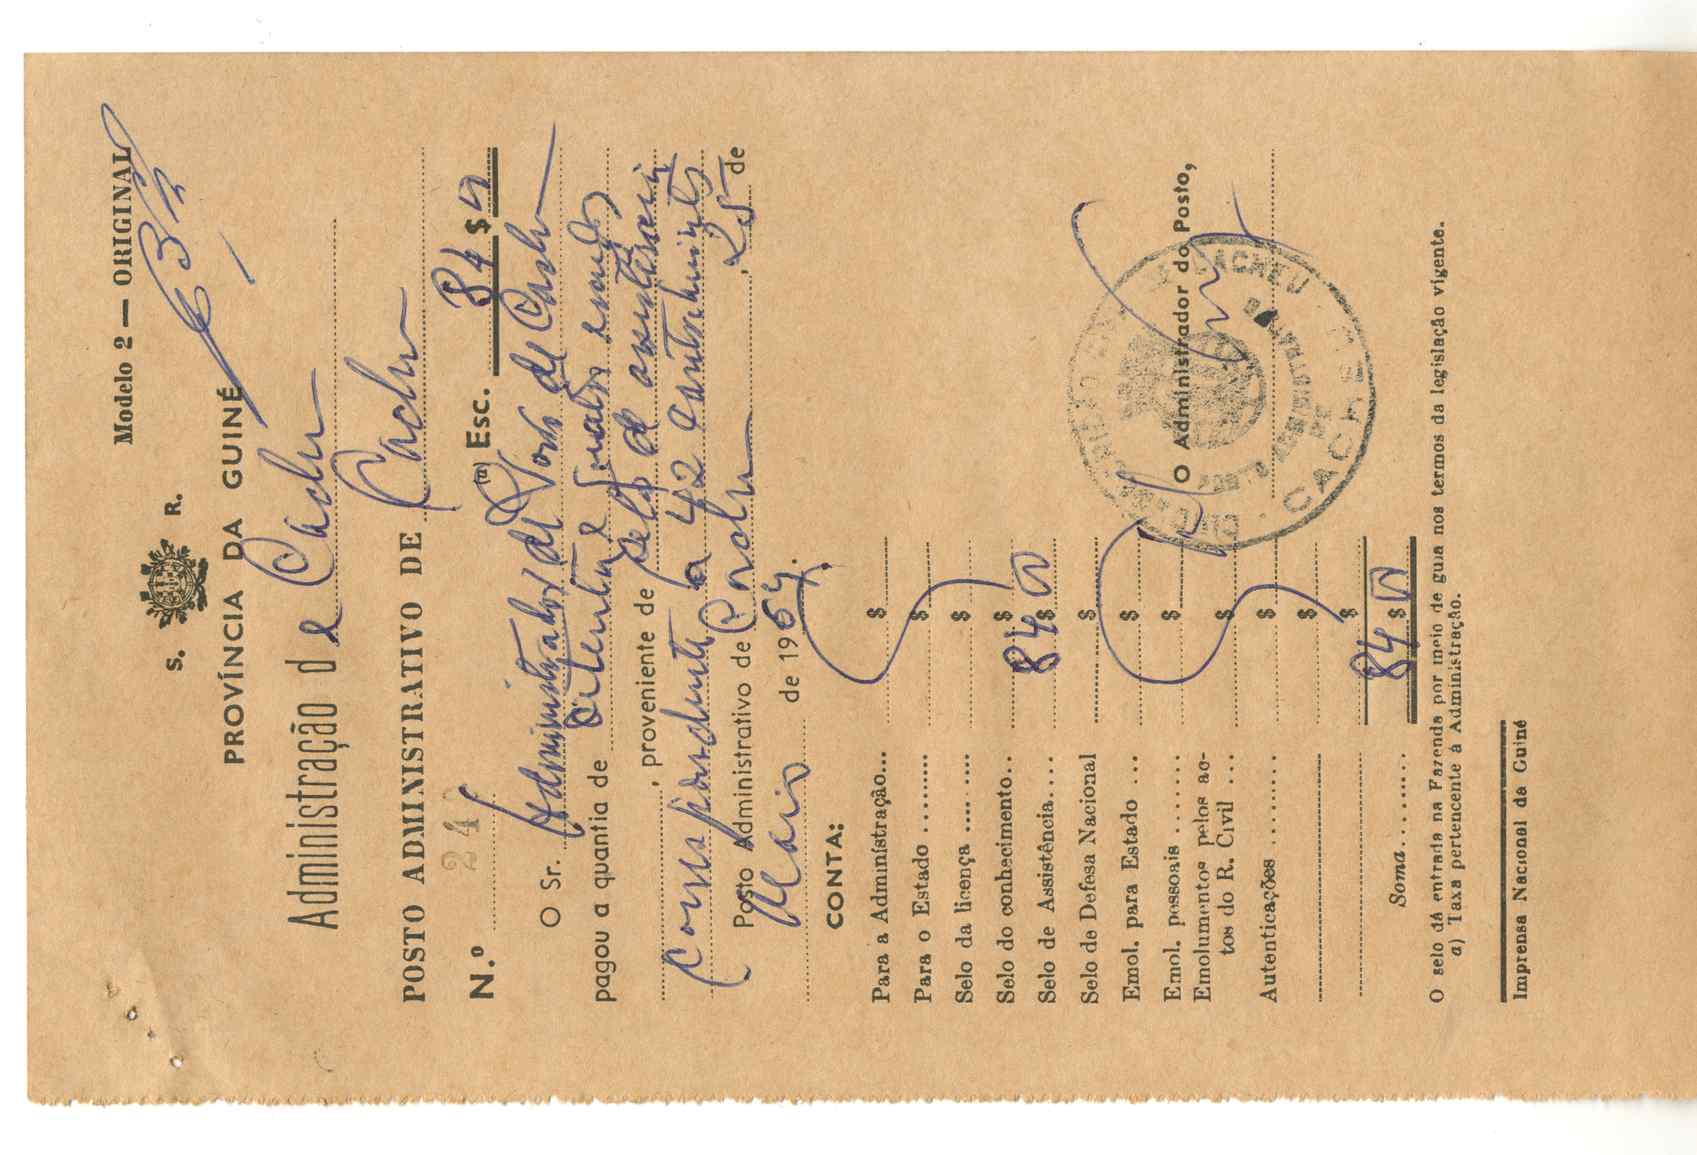 Modelo 2 — ORIGINAL
S. R.
PROVÍNCIA DA GUINÉ
Administração de Cacheu
POSTO ADMINISTRATIVO DE Cacheu
N.º 24 (a) Esc. 84$00
O Sr. Administrador do Posto de Cacheu
pagou a quantia de oitenta e quatro escudos
, proveniente de selo de assistência
correspondente a 42 contribuintes
Posto Administrativo de Cacheu, 25 de
Maio de 1964.
CONTA:
Para a Administração... $
Para o Estado ........ $
Selo da licença ........ $
Selo do conhecimento.. $
Selo de Assistência.... 84$00
Selo de Defesa Nacional $
Emol. para Estado ... $
Emol. pessoais ...... $
Emolumentos pelos ac-
tos do R. Civil ... $
Autenticações ........ $
$
$
Soma........ 84$00
O Administrador do Posto,
CACHEU
POSTO ADMINISTRATIVO
DE
CACHEU
O selo dá entrada na Fazenda por meio de guia nos termos da legislação vigente.
a) Taxa pertencente à Administração.
Imprensa Nacional da Guiné